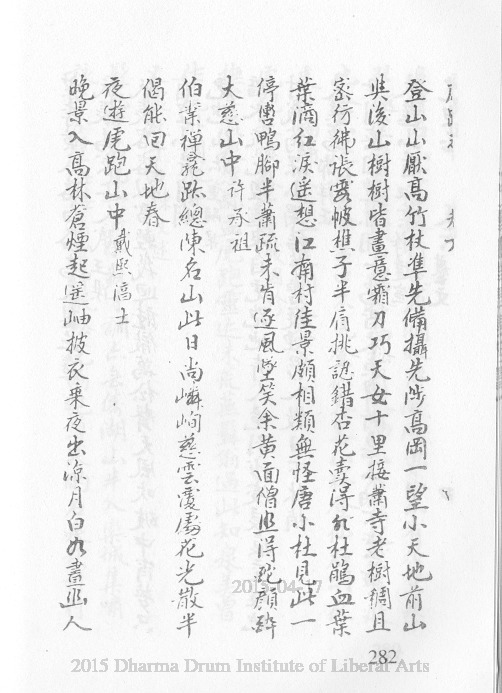 登山山厭高竹杖準先備攝先涉高岡一望小天地前山
與後山樹樹皆畫意霜刀巧天女十里接蕭寺老樹稠且
密行彿張雲帔樵子半肩挑認錯杏花賣淂非杜鵑血葉
葉滴紅淚遥想江南村佳景頗相類無怪唐小杜見此一
停轡鴨腳半蕭疏未肯逐風墜笑余黃面僧也得酡顏醉
大慈山中許承祖
伯業禪龕跡總陳名山此日尚嶙峋慈雲覆處花光散半
偈能回天地春
夜遊虎跑山中戴熙
晚景入高林蒼煙起遥岫披衣乘夜出涼月白如晝幽人
2015-04-17
282
2015 Dharma Drum Institute of Liberal Arts